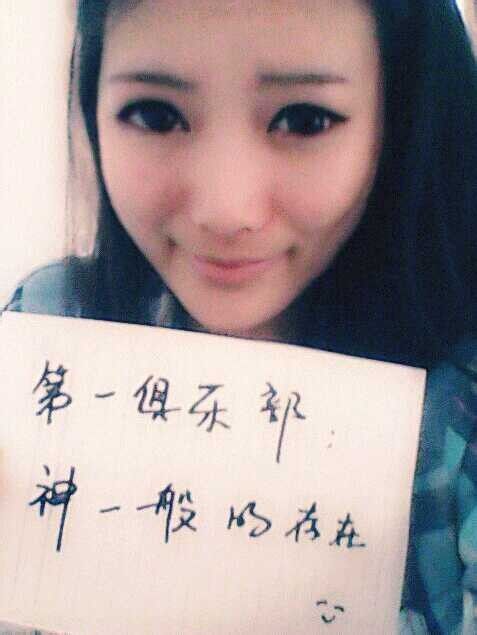 第一俱乐部：
神一般的存在